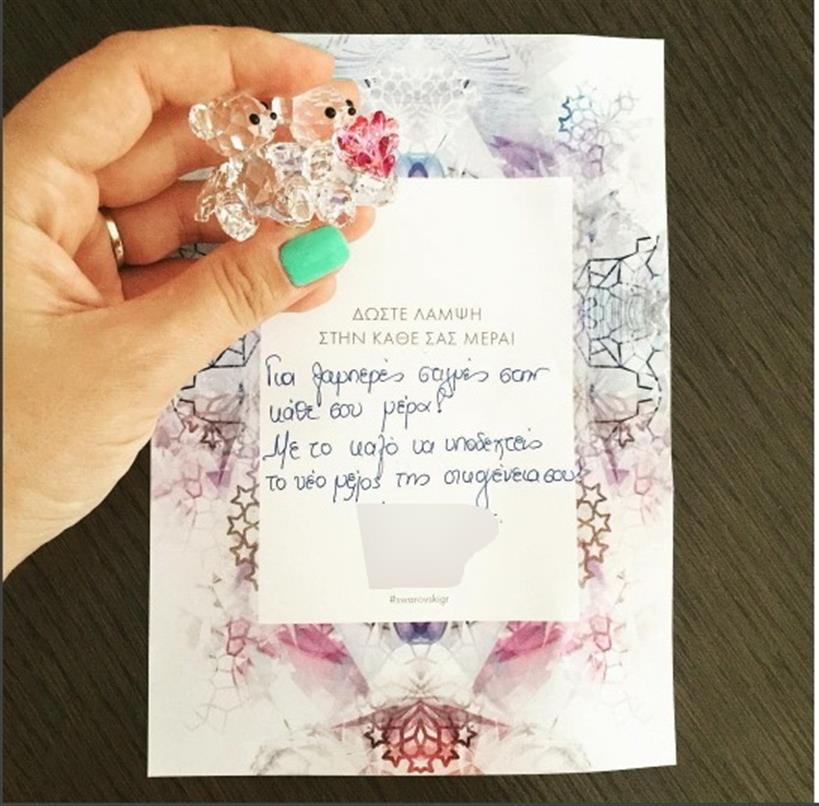 ΔΩΣΤΕ ΛΑΜΨΗ
ΣΤΗΝ ΚΑΘΕ ΣΑΣ ΜΕΡΑ!
Για λαμπερές στιγμές στην
κάθε σου μέρα!
Με το καλό να υποδεχτείς
το νέο μέλος της οικογένεια σου!
#swarovskigr